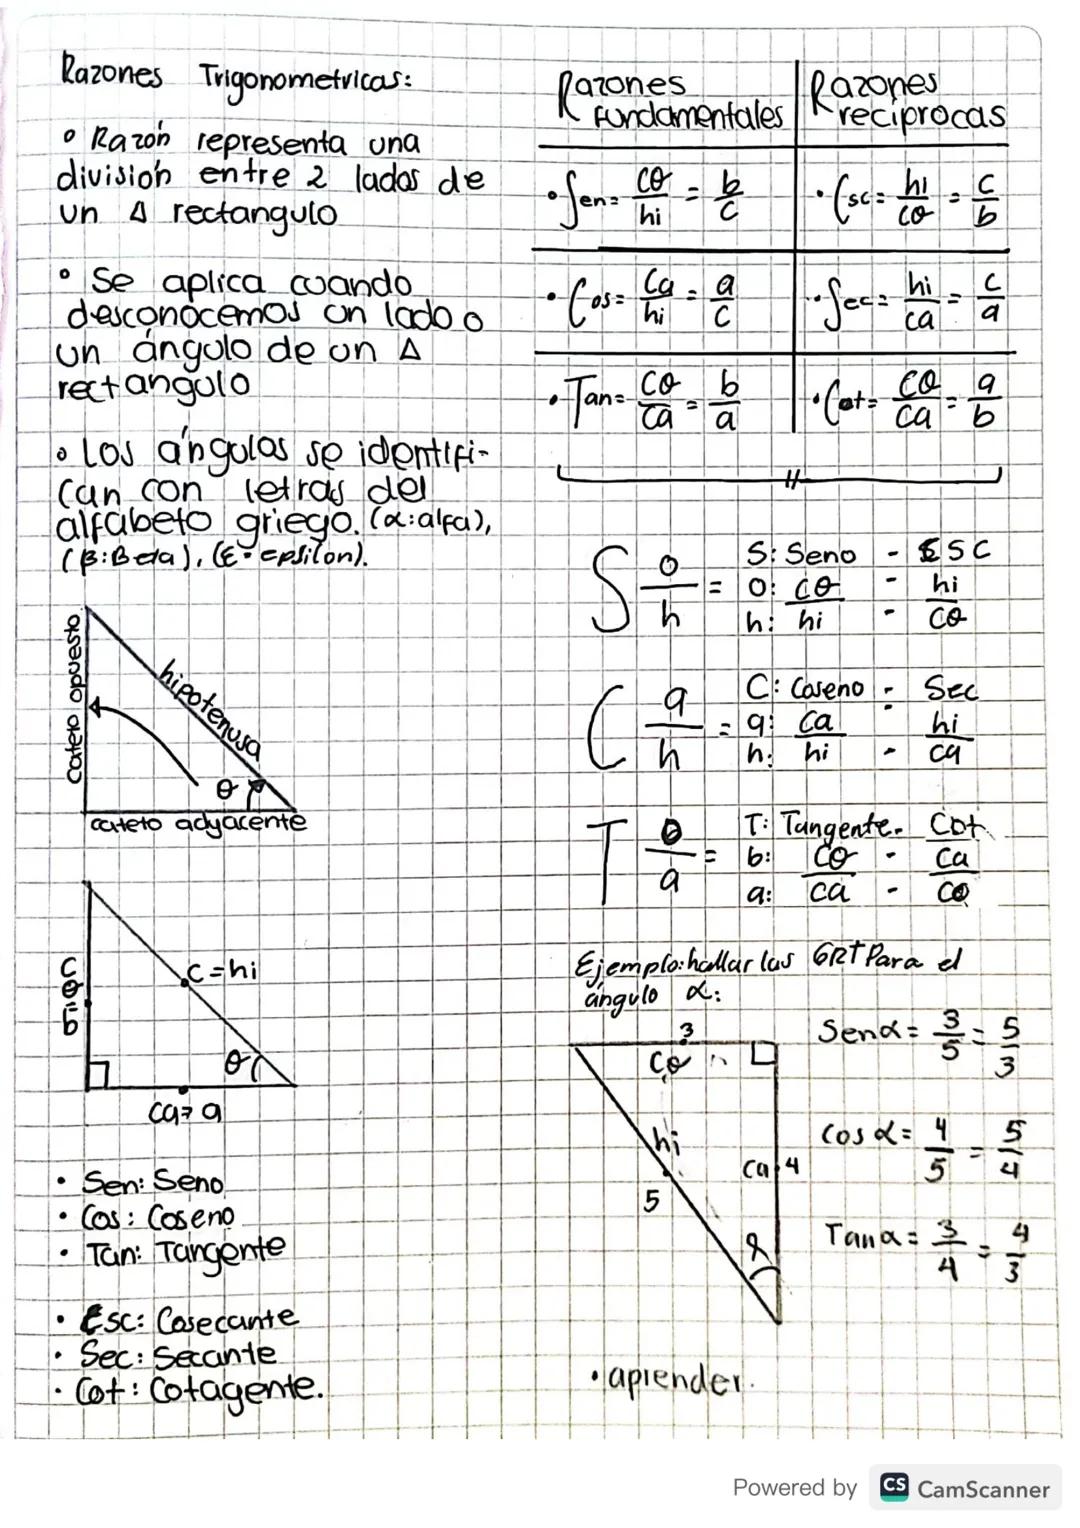 Razones Trigonometricas:
° Razón representa una
división entre 2 lados de
un Δ rectangulo
° Se aplica cuando
desconocemos un lado o
un ángulo de un Δ
rectangulo
° Los ángulos se identifi-
can con letras del
alfabeto griego. (α:alfa),
(β:Beta), (ε=epsilon).
cateto opuesto
hipotenusa
θ
cateto adyacente
co=b
c=hi
θ
ca=a
• Sen: Seno
• Cos: Coseno
• Tan: Tangente
• Csc: Cosecante
• Sec: Secante
• Cot: Cotagente.
Razones fundamentales | Razones reciprocas
• Sen= co/hi = b/c | • Csc= hi/co = c/b
• Cos= ca/hi = a/c | • Sec= hi/ca = c/a
• Tan= co/ca = b/a | • Cot= co/ca = a/b
S o/h = S: Seno - CSC
o: co - hi
h: hi - co
C a/h = C: Coseno - Sec
a: ca - hi
h: hi - ca
T o/a = T: Tangente - Cot
b: co - ca
a: ca - co
Ejemplo: hallar las 6RT Para el
ángulo α:
3
co
hi
5
ca 4
α
Senα = 3/5 = 5/3
Cos α = 4/5 = 5/4
Tanα = 3/4 = 4/3
• aprender.
Powered by CS CamScanner